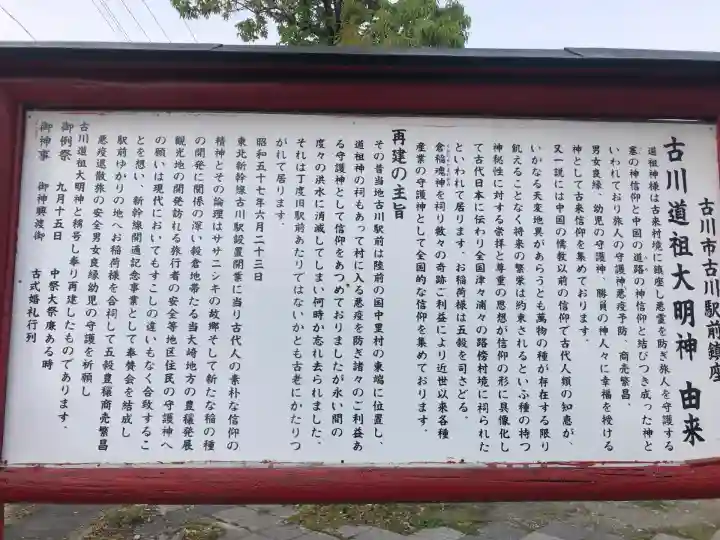 古川市古川駅前鎮座
古川道祖大明神 由来
道祖神様は古来村境に鎮座し悪霊を防ぎ旅人を守護する
塞の神信仰と中国の道路の神信仰と結びつき成った神と
いわれており旅人の守護神悪疫予防、商売繁昌、
男女良縁、幼児の守護神、勝負の神人々に幸福を授ける
神として古来信仰を集めております。
又一説には中国の儒教以前の信仰で古代人類の知恵が、
いかなる天変地異があろうとも萬物の種が存在する限り
飢えることなく将来の繁栄は約束されるといふ種の持つ
神秘性に対する崇拝と尊重の思想が信仰の形に具像化し
て古代日本に伝わり全国津々浦々の路傍村境に祠られた
といわれて居ります。お稲荷様は五穀を司さどる。
倉稲魂神を祠り数々の奇跡ご利益により近世以来各種
産業の守護神として全国的な信仰を集めております。
再建の主旨
その昔当地古川駅前は陸前の国中里村の東端に位置し、
道祖神の祠もあって村に入る悪疫を防ぎ諸々のご利益あ
る守護神として信仰をあつめておりましたが永い間の
度々の洪水に消滅してしまい何時か忘れ去られました、
それは丁度旧駅前あたりではないかとも古老にかたりつ
がれて居ります。
昭和五十七年六月二十三日
東北新幹線古川駅設置開業に当り古代人の素朴な信仰の
精神とその論理はササニシキの故郷そして新たな稲の種
の開発に関係の深い穀倉地帯たる当大崎地方の豊穣発展
観光地の開発訪れる旅行者の安全等地区住民の守護神へ
の願いは現代においてもすこしの違いもなく合致するこ
とを想い、新幹線開通記念事業として奉賛会を結成し
駅前ゆかりの地へお稲荷様を合祠して五穀豊穣商売繁昌
悪疫退散旅の安全男女良縁幼児の守護を祈願し
古川道祖大明神と稱号し奉り再建したものであります。
御例祭 九月十五日 中祭大祭廉ある時
御神事 御神輿渡御 古式婚礼行列